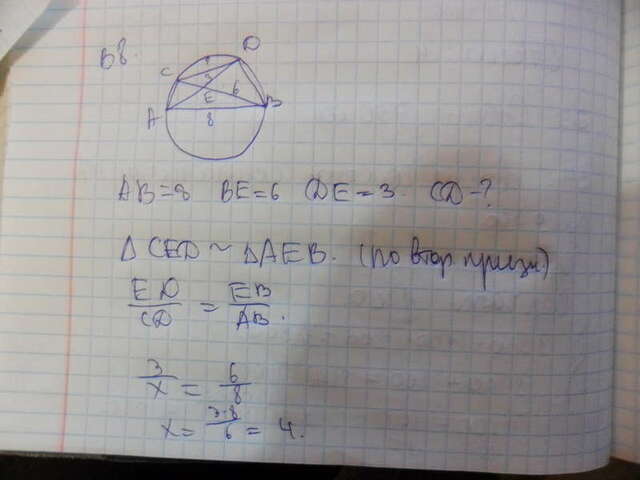 В6.
D
C
?
3
6
E
A
B
8
AB=8 BE=6 DE=3. CD-?
Δ CED ~ ΔAEB. (по втор призн)
ED/CD = EB/AB.
3/x = 6/8
x = 3·8/6 = 4.